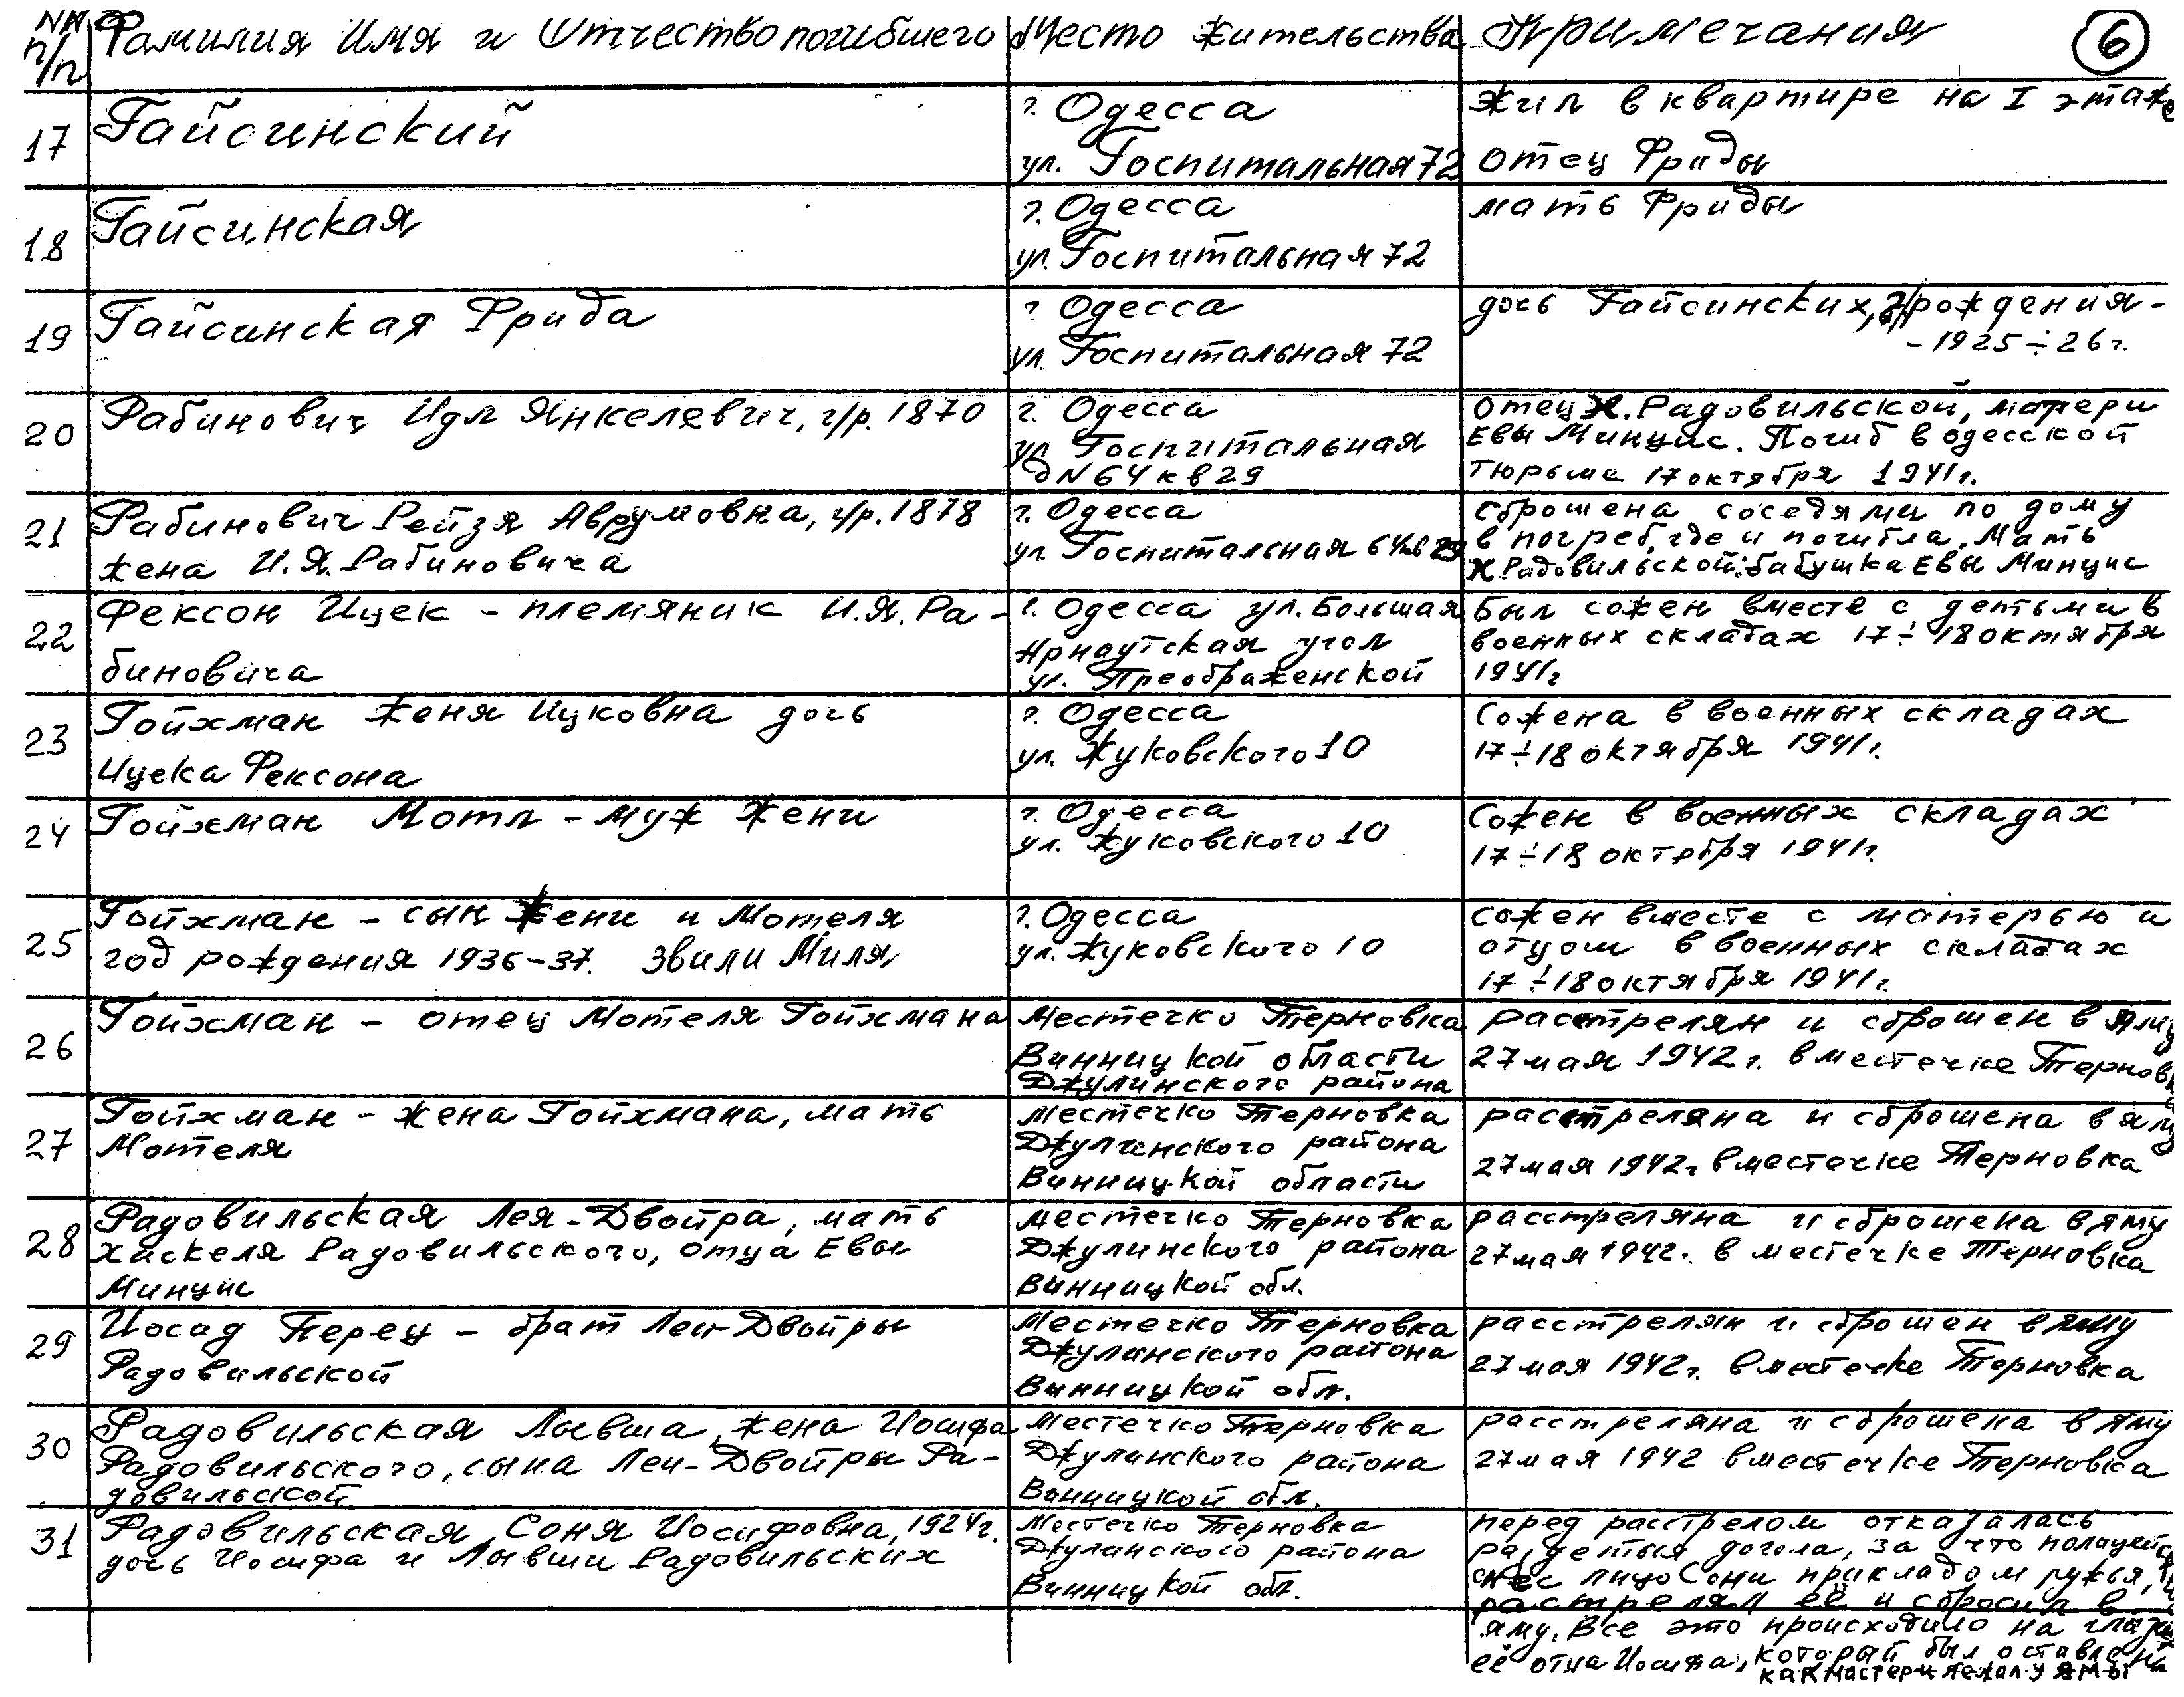 NN п/п Фамилия Имя и Отчество погибшего Место жительства Примечания 6
17 Гайсинский г. Одесса Жил в квартире на I этаже
ул. Госпитальная 72 отец Фриды
18 Гайсинская г. Одесса мать Фриды
ул. Госпитальная 72
19 Гайсинская Фрида г. Одесса дочь Гайсинских, г/рождения -
ул. Госпитальная 72 - 1925÷26 г.
20 Рабинович Идл Янкелевич, г/р. 1870 г. Одесса отец Х. Радовильской, матери
ул Госпитальная Евы Минцис. Погиб в одесской
д N 64 кв 29 тюрьме 17 октября 1941г.
21 Рабинович Рейзя Аврумовна, г/р. 1878 г. Одесса сброшена соседями по дому
ул. Госпитальная 64 кв 29 в погреб, где и погибла. Мать
жена И.Я. Рабиновича Х. Радовильской, бабушка Евы Минцис
22 Фексон Ицек - племяник И.Я. Ра- г. Одесса ул. Большая Был сожен вместе с детьми в
Арнаутская угол военных складах 17÷18 октября
биновича ул. Преображенской 1941г
23 Гойхман Женя Ицковна дочь г. Одесса Сожена в военных складах
Ицека Фексона ул. Жуковского 10 17÷18 октября 1941г.
24 Гойхман Мотл - муж Жени г. Одесса Сожен в военных складах
ул. Жуковского 10 17÷18 октября 1941г.
25 Гойхман - сын Жени и Мотеля г. Одесса сожен вместе с матерью и
год рождения 1936-37. звали Миля ул. Жуковского 10 отцом в военных складах
17÷18 октября 1941г.
26 Гойхман - отец Мотеля Гойхмана Местечко Терновка расстрелян и сброшен в яму
Винницкой области 27 мая 1942г. в местечке Тернов
Джулинского района
27 Гойхман - жена Гойхмана, мать местечко Терновка расстреляна и сброшена в яму
Мотеля Джулинского района 27 мая 1942г. в местечке Терновка
Винницкой области
28 Радовильская Лея-Двойра, мать местечко Терновка расстреляна и сброшена в яму
хаскеля Радовильского, отца Евы Джулинского района 27 мая 1942. в местечке Терновка
Минцис Винницкой обл.
29 Иосад Перец - брат Леи-Двойры Местечко Терновка расстрелян и сброшен в яму
Радовильской Джулинского района 27 мая 1942г. в местечке Терновка
Винницкой обл.
30 Радовильская Лывша, жена Иосифа местечко Терновка расстреляна и сброшена в яму
Радовильского, сына Леи-Двойры Ра- Джулинского района 27 мая 1942 в местечке Терновка
довильской Винницкой обл.
31 Радовильская Соня Иосифовна, 1924г. местечко Терновка перед расстрелом отказалась
дочь Иосифа и Лывши Радовильских Джулинского района раздеться догола, за что полицейс
Винницкой обл. снес лицо Сони прикладом ружья,
расстрелял её и сбросил в
яму. Все это происходило на глазах
её отца Иосифа, который был оставлен
как мастер и лежал у ямы